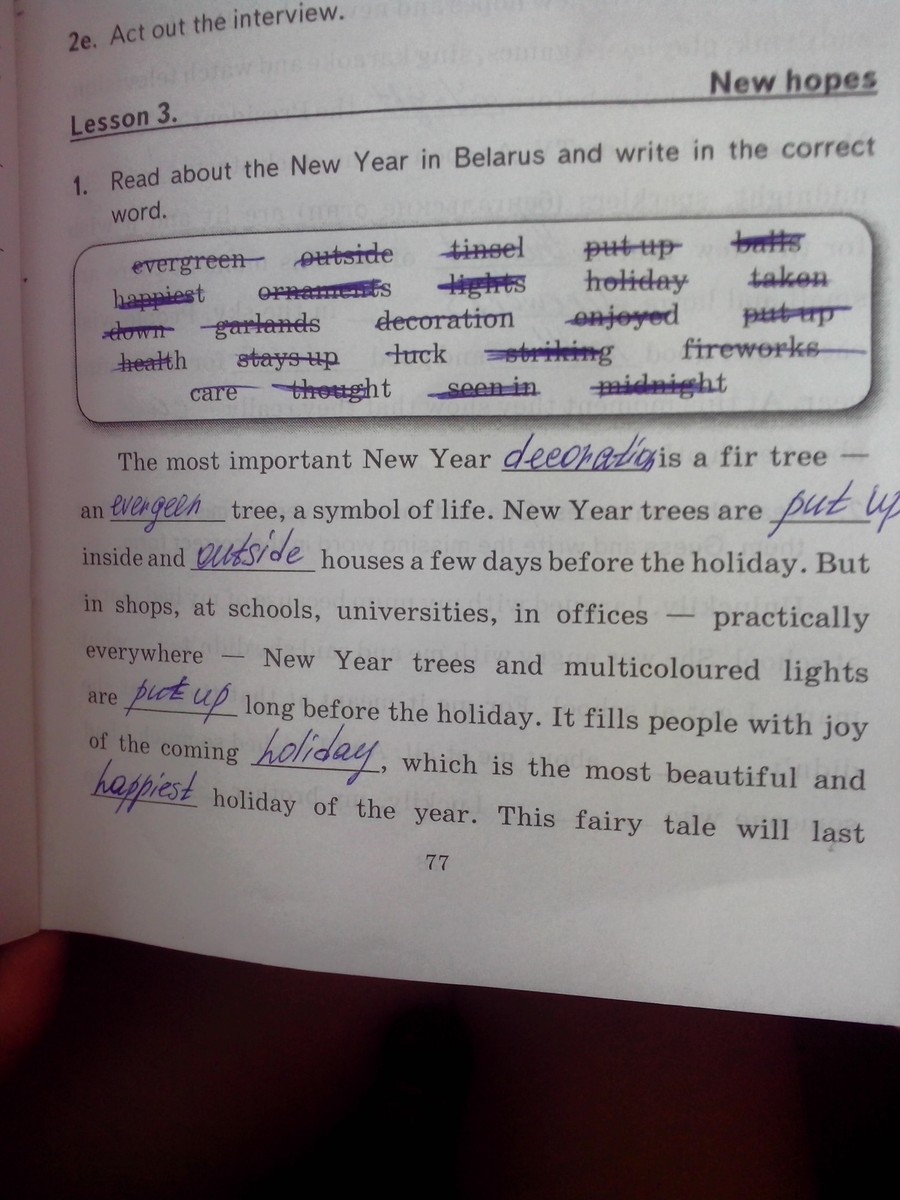 2e. Act out the interview.
New hopes
Lesson 3.
1. Read about the New Year in Belarus and write in the correct
word.
evergreen outside tinsel put up balls
happiest ornaments lights holiday taken
down garlands decoration enjoyed put up
health stays up luck striking fireworks
care thought seen in midnight
The most important New Year decoration is a fir tree —
an evergeen tree, a symbol of life. New Year trees are put up
inside and outside houses a few days before the holiday. But
in shops, at schools, universities, in offices — practically
everywhere — New Year trees and multicoloured lights
are put up long before the holiday. It fills people with joy
of the coming holiday, which is the most beautiful and
happiest holiday of the year. This fairy tale will last
77